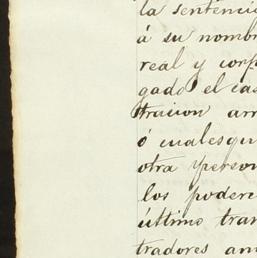 la sentenci
á su nombr
real y corp
gado el cas
tracion arr
ó cualesqu
otra person
los podere
último tran
tradores an